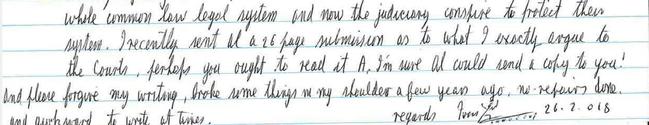 whole common law legal system and now the judiciary conspire to protect their
system. I recently sent Al a 26 page submission as to what I exactly argue to
the Courts, perhaps you ought to read it A, I'm sure Al could send a copy to you!
and please forgive my writing, broke some things in my shoulder a few years ago, no repairs done.
and awkward to write at times. regards 26.2.018